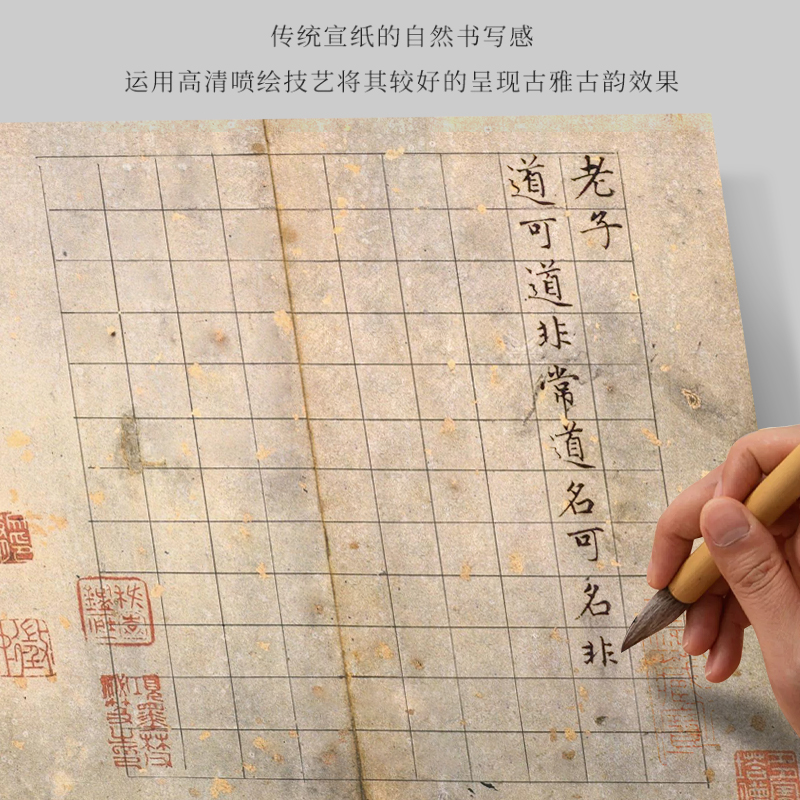 传统宣纸的自然书写感
运用高清喷绘技艺将其较好的呈现古雅古韵效果
老子
道可道非常道名可名非